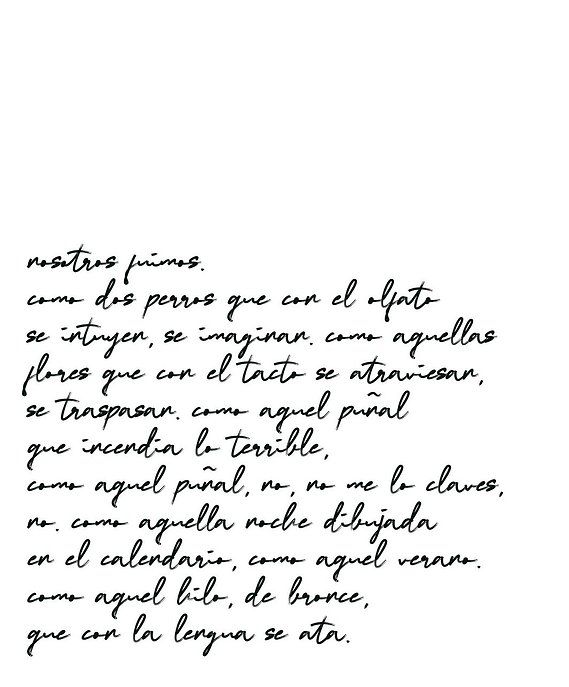 nosotros fuimos.
como dos perros que con el olfato
se intuyen, se imaginan. como aquellas
flores que con el tacto se atraviesan,
se traspasan. como aquel puñal
que incendia lo terrible,
como aquel puñal, no, no me lo claves,
no. como aquella noche dibujada
en el calendario, como aquel verano.
como aquel hilo, de bronce,
que con la lengua se ata.